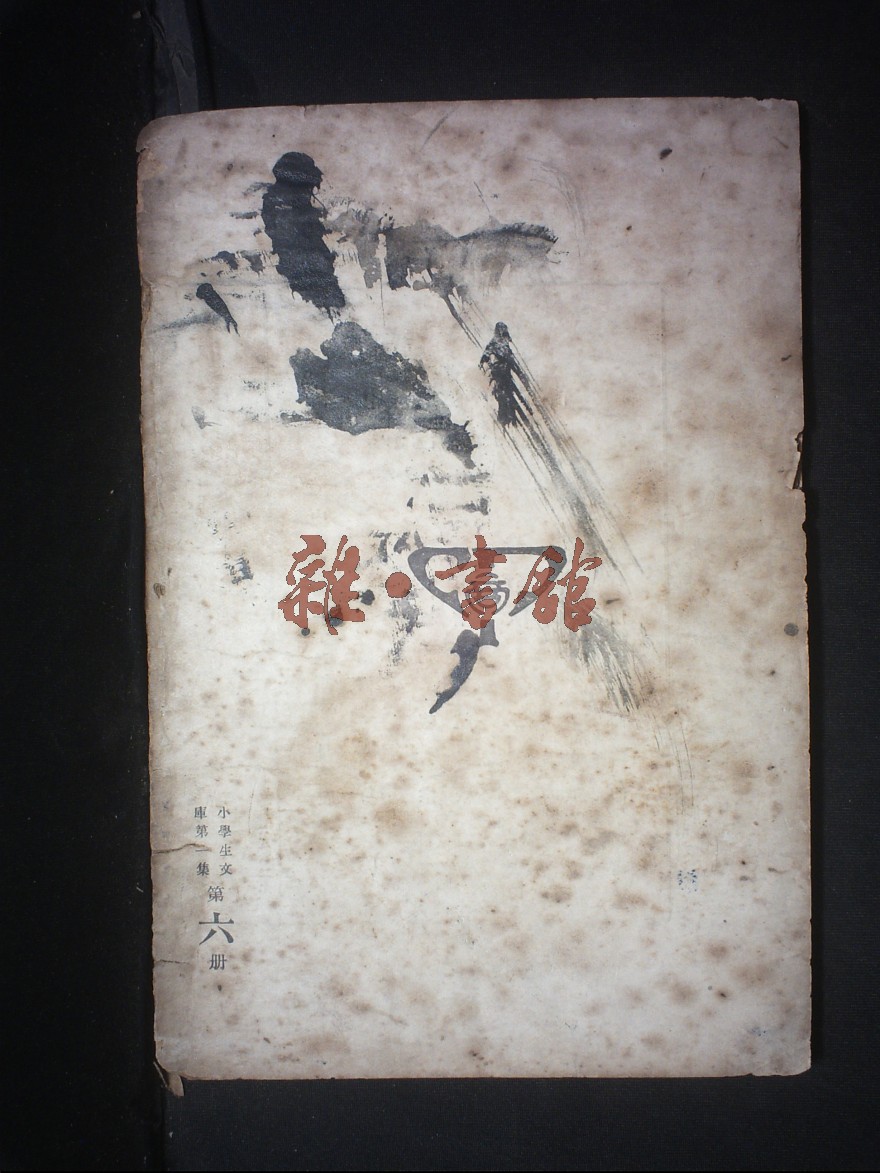 雜·書館
小學生文
庫第一集
第六册